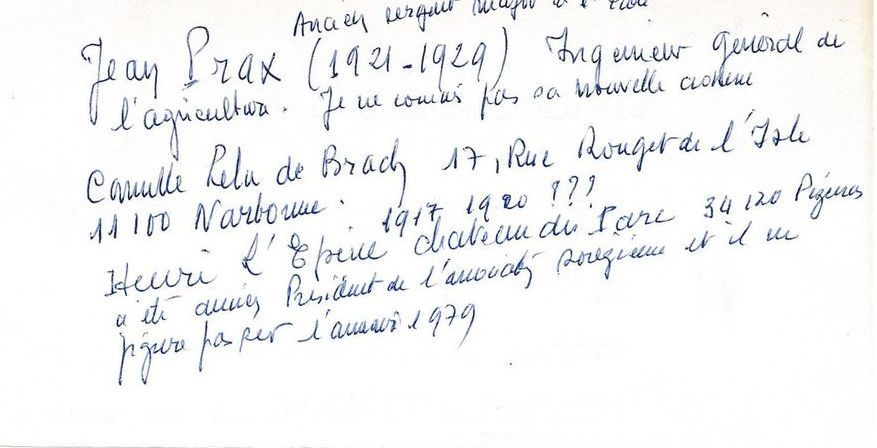 Ancien sergent major à l'
Jean Prax (1921-1929) Ingenieur général de
l'agriculture. Je ne connais pas sa nouvelle adresse
Camille de Brady 17, Rue Rouget de l'Isle
11100 Narbonne. 1917 1920 ???
Henri L'Epine chateau du Parc 34120 Pézenas
a été ancien Président de l'association sorezienne et il ne
figure pas sur l'annuaire 1979